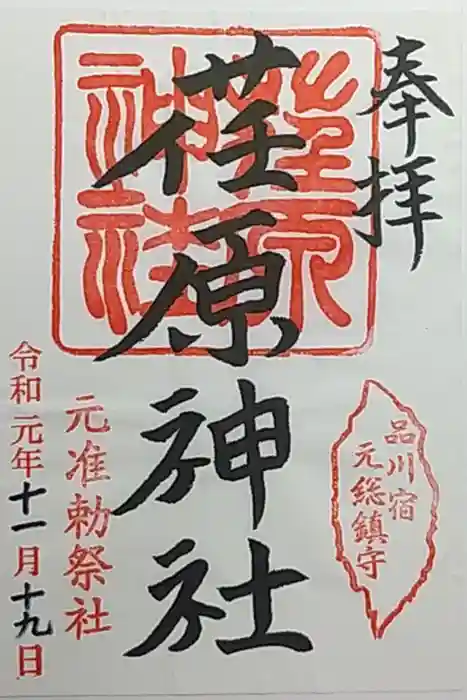 奉拝
荏原神社
荏原
神社
品川宿
元総鎮守
元准勅祭社
令和元年十一月十九日